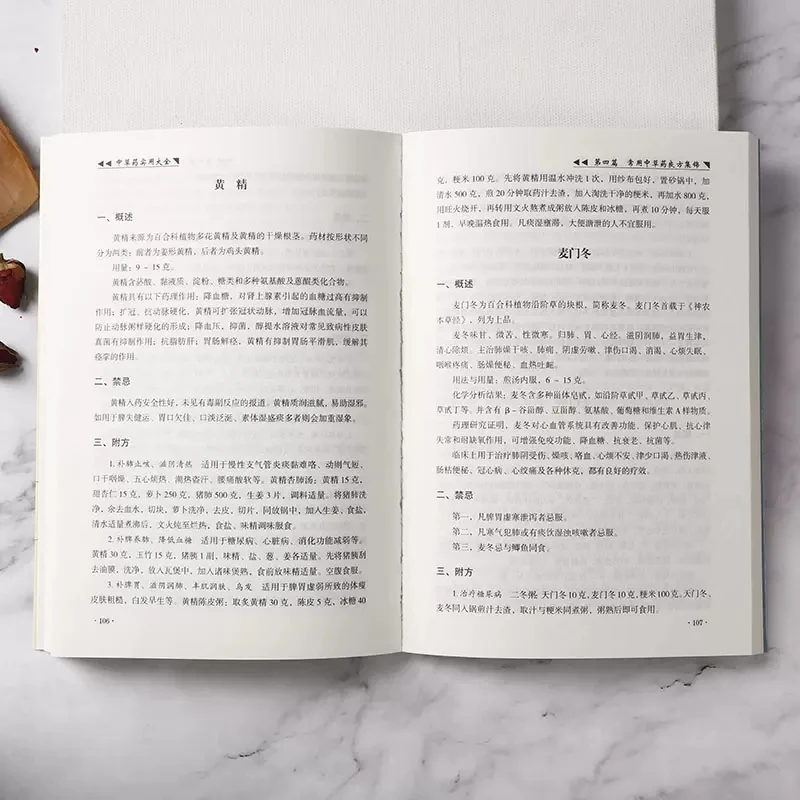 中草药实用大全
黄 精
一、概述
黄精来源为百合科植物多花黄精及黄精的干燥根茎。药材按形状不同
分为两类：前者为姜形黄精，后者为鸡头黄精。
用量：9－15克。
黄精含菸酸、黏液质、淀粉、糖类和多种氨基酸及蒽醌类化合物。
黄精具有以下药理作用：降血糖，对肾上腺素引起的血糖过高有抑制
作用；扩冠、抗动脉硬化，黄精可扩张冠状动脉，增加冠脉血流量，可以
防止动脉粥样硬化的形成；降血压，抑菌，醇提水溶液对常见致病性皮肤
真菌有抑制作用；抗脂肪肝；胃肠解痉，黄精有抑制胃肠平滑肌，缓解其
痉挛的作用。
二、禁忌
黄精入药安全性好，未见有毒副反应的报道。黄精质润滋腻，易助湿邪。
如用于脾失健运、胃口欠佳、口淡泛涎、素体湿盛痰多者则会加重湿象。
三、附方
1.补肺止咳、滋阴清热 适用于慢性支气管炎痰黏难咯、动则气短、
口干咽燥、五心烦热、潮热盗汗、腰痛酸软等。黄精杏肺汤：黄精15克，
甜杏仁15克，萝卜250克，猪肺500克，生姜3片，调料适量。将猪肺洗
净，汆去血水，切块，萝卜洗净，去皮，切片，同放锅中，加入生姜、食盐，
清水适量煮沸后，文火炖至烂熟，食盐、味精调味服食。
2.补脾养肺、降低血糖 适用于糖尿病、心脏病、消化功能减弱等。
黄精30克，玉竹15克，猪胰1副，味精、盐、葱、姜各适量。先将猪胰刮
去油膜，洗净，放入瓦煲中，加入诸味煲熟，食前放味精适量。空腹食服。
3.补脾胃、滋阴润肺、丰肌润肤、乌发 适用于脾胃虚弱所致的体瘦
皮肤粗糙，白发早生等。黄精陈皮粥：取炙黄精30克，陈皮5克，冰糖40
·106·
第四篇 常用中草药良方集锦
克，粳米100克。先将黄精用温水冲洗1次，用纱布包好，置砂锅中，加
清水500克，煎20分钟取药汁去渣，加入淘洗干净的粳米，再加水800克，
用旺火烧开，再转用文火熬煮成粥放入陈皮和冰糖，再煮10分钟，每天服
1剂，早晚温热食用。凡痰湿壅滞，大便溏泄的人不宜服用。
麦门冬
一、概述
麦门冬为百合科植物沿阶草的块根，简称麦冬。麦门冬首载于《神农
本草经》，列为上品。
麦冬味甘、微苦、性微寒。归肺、胃、心经。滋阴润肺，益胃生津，
清心除烦。主治肺燥干咳、肺痈、阴虚劳嗽、津伤口渴、消渴、心烦失眠、
咽喉疼痛、肠燥便秘、血热吐衄。
用法与用量：煎汤内服，6－15克。
化学分析结果：麦冬含多种甾体皂甙，如沿阶草甙甲、草甙乙、草甙丙、
草甙丁等。并含有β－谷甾醇、豆甾醇、氨基酸、葡萄糖和维生素A样物质。
药理研究证明，麦冬对心血管系统具有改善功能、保护心肌、抗心津
失常和耐缺氧作用，可增强免疫功能、降血糖、抗衰老、抗菌等。
临床上用于治疗肺阴受伤、燥咳、咯血、心烦不安、津少口渴、热伤津液、
肠枯便秘、冠心病、心绞痛及各种休克，都有良好的疗效。
二、禁忌
第一，凡脾胃虚寒泄泻者忌服。
第二，凡寒气犯肺或有痰饮湿浊咳嗽者忌服。
第三，麦冬忌与鲫鱼同食。
三、附方
1.治疗糖尿病 二冬粥。天门冬10克，麦门冬10克，粳米100克。天门冬、
麦冬同入锅煎汁去渣，取汁与粳米同煮粥，粥熟后即可食用。
·107·